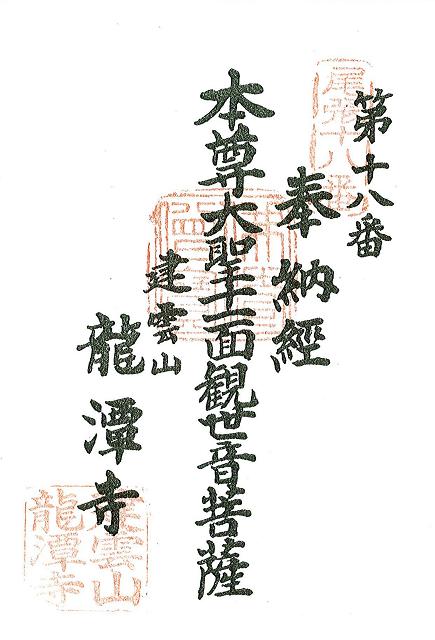 第十八番
尾張十八番
奉納經
本尊大聖十一面観世音菩薩
建雲山
龍潭寺
建雲山
龍潭寺